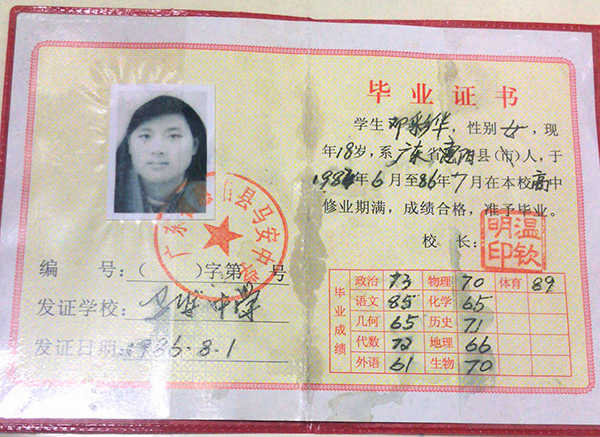 毕业证书
学生 邓彩华，性别 女，现
年 18 岁，系 广东 省 惠阳 县（市）人，于
198 年 6 月至 86 年 7 月在本校 高 中
修业期满，成绩合格，准予毕业。
校 长：
温钦明印
毕业成绩
政治 73 物理 70 体育 89
语文 85 化学 65
几何 65 历史 71
代数 72 地理 66
外语 61 生物 70
广东 县马安中学
编 号：（ ）字第 号
发证学校：马安中学
发证日期：1986.8.1